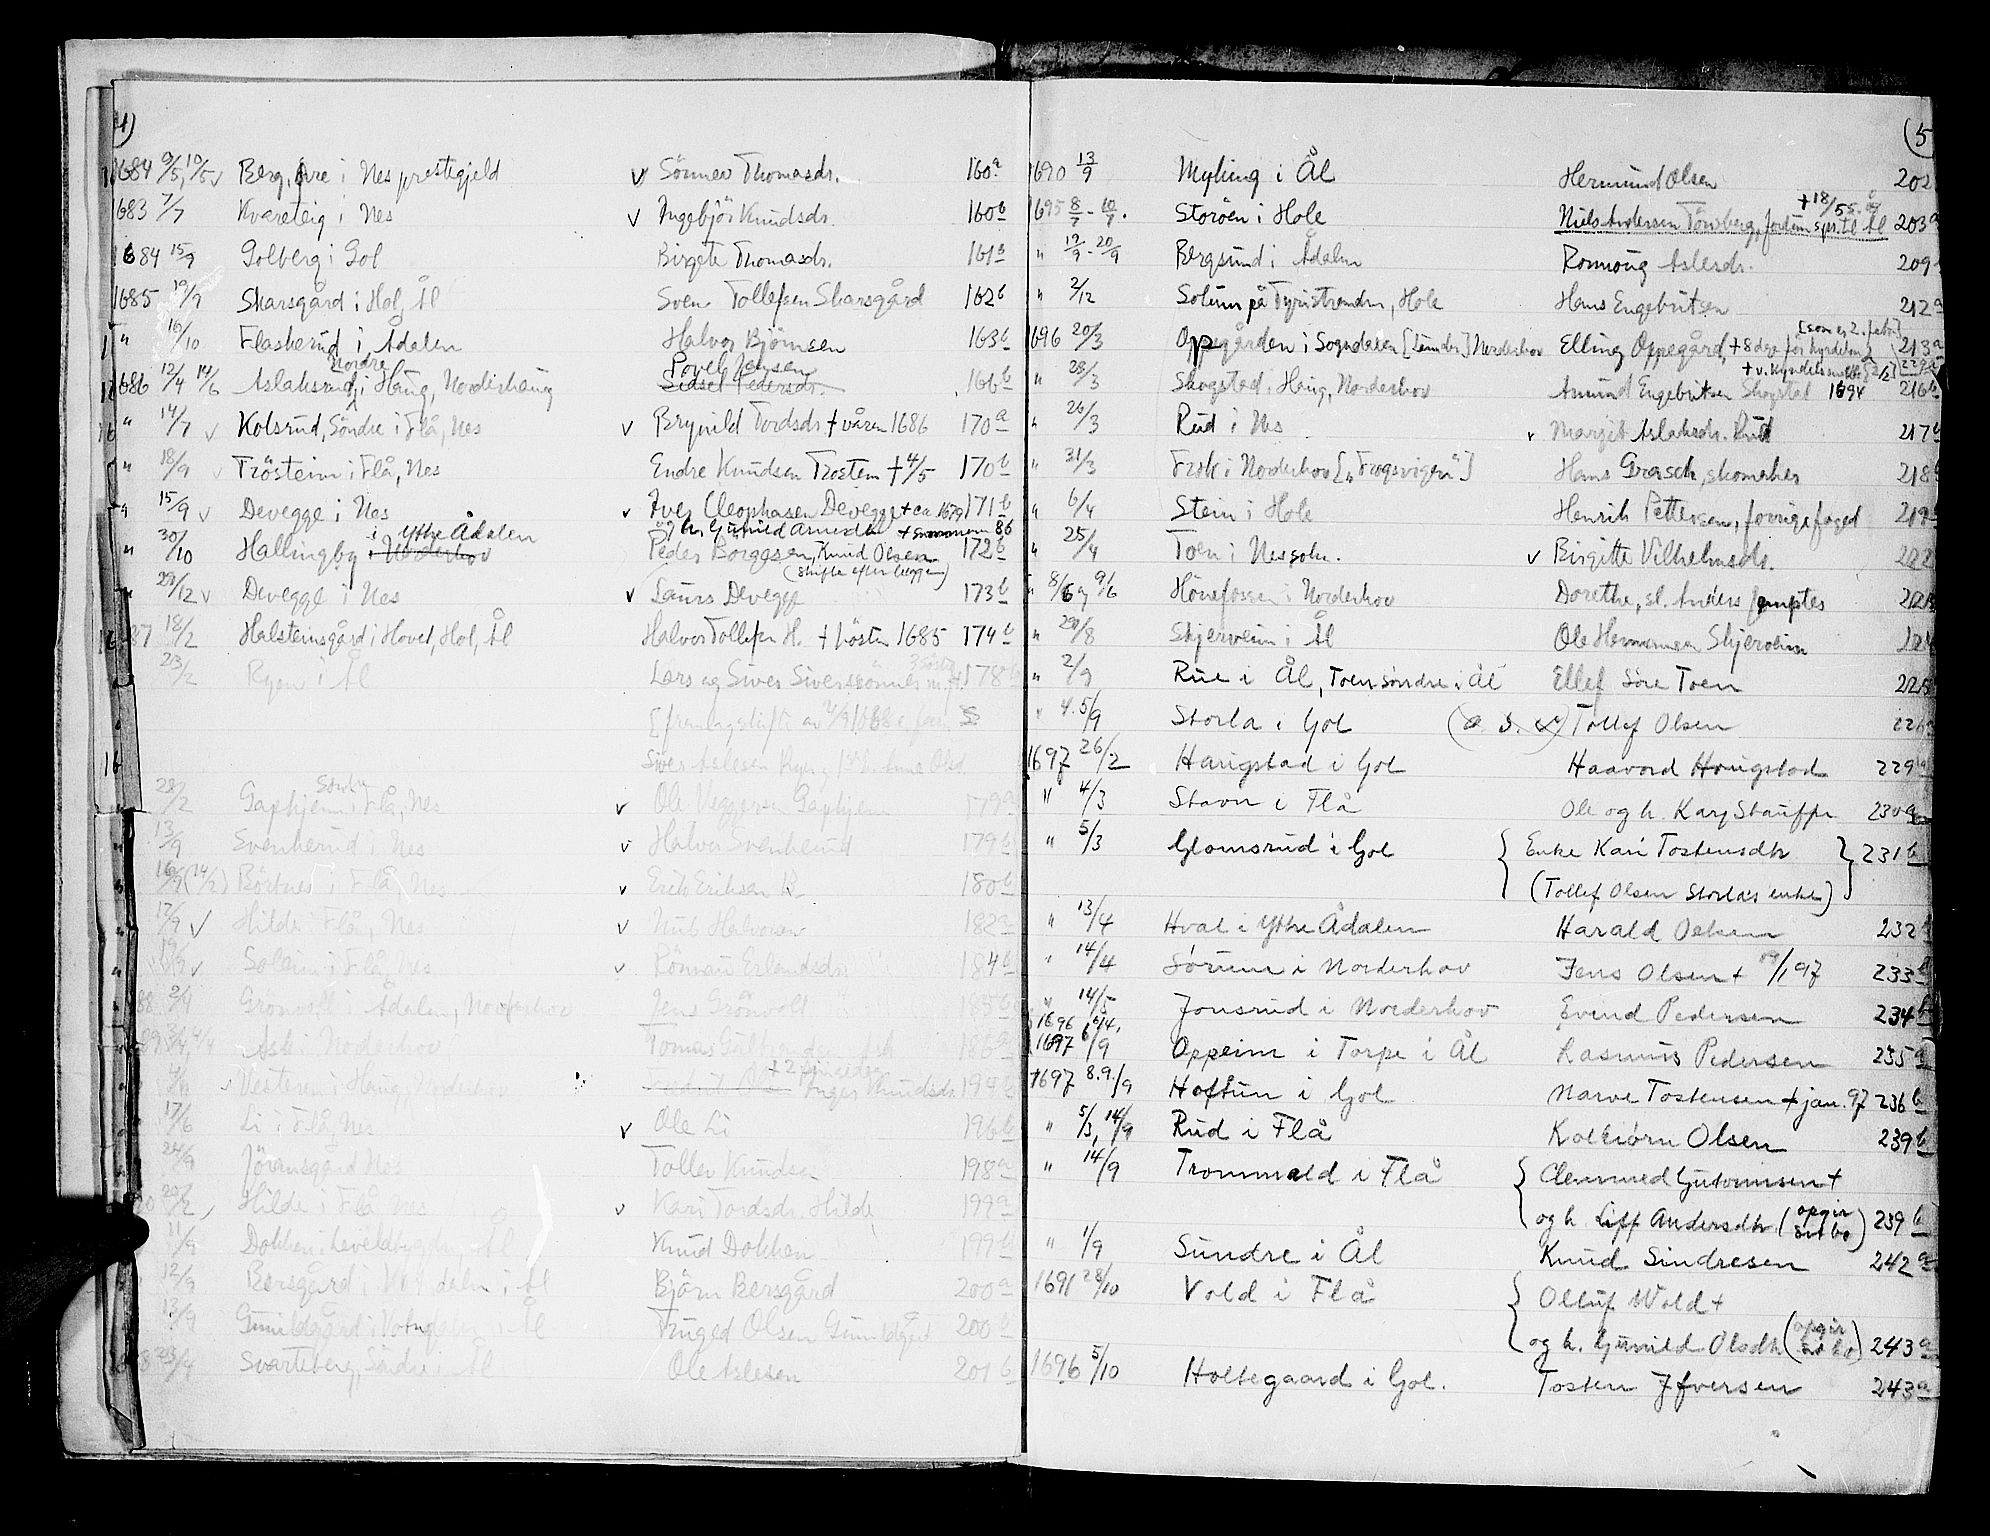 4)
1684 9/5, 10/5 v Berg, Øvre i Nes prestegjeld v Sönnev Thomasdr. 160a
1683 7/7 Kvareteig i Nes v Ingebjör Knudsdr. 160b
1684 15/9 Golberg i Gol Birgete Thomasdr. 161a
1685 19/9 Skarsgård i Hol, Ål Sven Tollefsen Skarsgård 162b
" 16/10 Flaskerud i Ådalen Halvor Björnsen 163b
Nordre Povel Jensen
1686 12/4 14/6 Aslaksrud i Haug, Norderhaug Sidsel Pedersdr. 166b
" 14/7 v Kolsrud, Söndre i Flå, Nes v Brynild Tordsdr + våren 1686 170a
" 18/9 v Trösteim i Flå, Nes Endre Knudsen Trostem + 4/5 170b
" 15/9 v Devegge i Nes v Iver Cleophasen Devegge + ca 1679 171b
i Ytre Ådalen og h. Gunild Arnesdtr + sommeren 86
" 30/10 Hallingby i Norderhov Peder Börgesen, Knud Olsen 172b
(skifte efter begge)
" 29/12 v Devegge i Nes v Laurs Devegge 173b
1687 18/2 Halsteinsgård i Hovet, Hol, Ål Halvor Tollefsen H. + hösten 1685 174b
23/2 Ryen i Ål Lars og Siver Siverssönner 178b
Siver Aslesen Rye og
28/2 Gaptjern i Flå, Nes v Ole Veggersen Gaptjern 179a
13/9 Svenkerud i Nes v Halvor Svenkerud 179b
16/9 (14/2) Börtnes i Flå, Nes v Erik Eriksen B 180b
17/9 v Hilde i Flå, Nes v Nub Halvorsen 182a
19/9 v Soleim i Flå, Nes v Rönnau Erlandsdr 184b
88 2/4 Grönvoll i Ådalen, Norderhov Jens Grönvolt 185b
89 3/4, 4/4 Ask i Norderhov Tomas Gulbrandsen Ask 186a
v Vesteren i Haug, Norderhov Inger Knudsdr. 194b
17/6 Li i Flå, Nes v Ole Li 196b
24/9 Jöransgård Nes Tollev Knudsen 198a
20/2 Hilde i Flå Nes v Kari Tordsdr. Hilde 199a
11/9 Dokken i Leveldbygdn, Ål Knud Dokken 199b
12/9 Bersgård i Votndalen i Ål Björn Bersgård 200a
13/9 Gunildgård i Votndalen i Ål Truged Olsen Gunildgård 200b
23/4 Svarteberg, Söndre i Ål Ole Aslesen 201b
(5
1690 13/9 Myking i Ål Hermund Olsen 202
+ 18/5 5.
1695 8/7 - 10/7. Storöen i Hole Niels Andersen Tönsberg, fordum spr. til Ål 203a
" 19/9 - 20/9 Bergsund i Ådalen Ronnoug Aslesdr. 209
" 2/12 Solum på Tyristranden, Hole Hans Engebritsen 212a
[som er 2. febr]
1696 20/3 Oppegården i Sogndalen [Lunder] Norderhov Elling Oppegård, + 8 dge för Kyndelm 213a
+ v. Kyndelsmesse [2/2]
" 28/3 Skogstad i Haug, Norderhov Amund Engebritsen Skogstad 1694 216b
" 26/3 Rud i Nes v Margit Aslaksdr. Rud 217b
" 31/3 Frok i Norderhov ["Frogsvigen"] Hans Grasch, skomaker 218
" 6/4 Stein i Hole Henrik Pettersen, forrige foged 219
" 25/4 Toen i Nes sokn. v Birgitte Vilhelmsdr. 222
" 8/6 og 9/6 Hönefossen i Norderhov Dorethe, sl. Anders Jemptes
" 29/8 Skjerveim i Ål Ole Hermansen Skjerveim
" 2/9 Rue i Ål, Toen Söndre i Ål Ellef Söre Toen 225
" 4. 5/9 Storla i Gol Tollef Olsen 226a
1697 26/2 Harigstad i Gol Haavord Horigstad 229a
" 4/3 Stavn i Flå Ole og h. Kary Stauffn 230a
" 5/3 Glomsrud i Gol { Enke Kari Tostensdtr } 231b
(Tollef Olsen Storlas enke)
" 13/4 Hval i Ytre Ådalen Harald Oelsen 232b
" 14/4 Sörum i Norderhov Jens Olsen + 19/1 97 233b
" 14/5 Jonsrud i Norderhov Evind Pedersen 234b
1696 6/4,
1697 6/9 Oppeim i Torpe i Ål Rasmus Pedersen 235a
1697 8.9./9 Hoftun i Gol Narve Tostensen + jan. 97 236b
" 5/3, 14/9 Rud i Flå Kolbiörn Olsen 239b
" 14/9 Trommald i Flå { Clemmed Gutormsen +
og h. Liff Andersdtr (opgir sit bo) 239b
" 1/9 Sundre i Ål Knud Sindresen 242a
1691 28/10 Vold i Flå { Olluf Wold +
og h. Gunild Olsdtr (opgir sit bo) 243a
1696 5/10 Holtegaard i Gol. Tosten Ifversen 243a